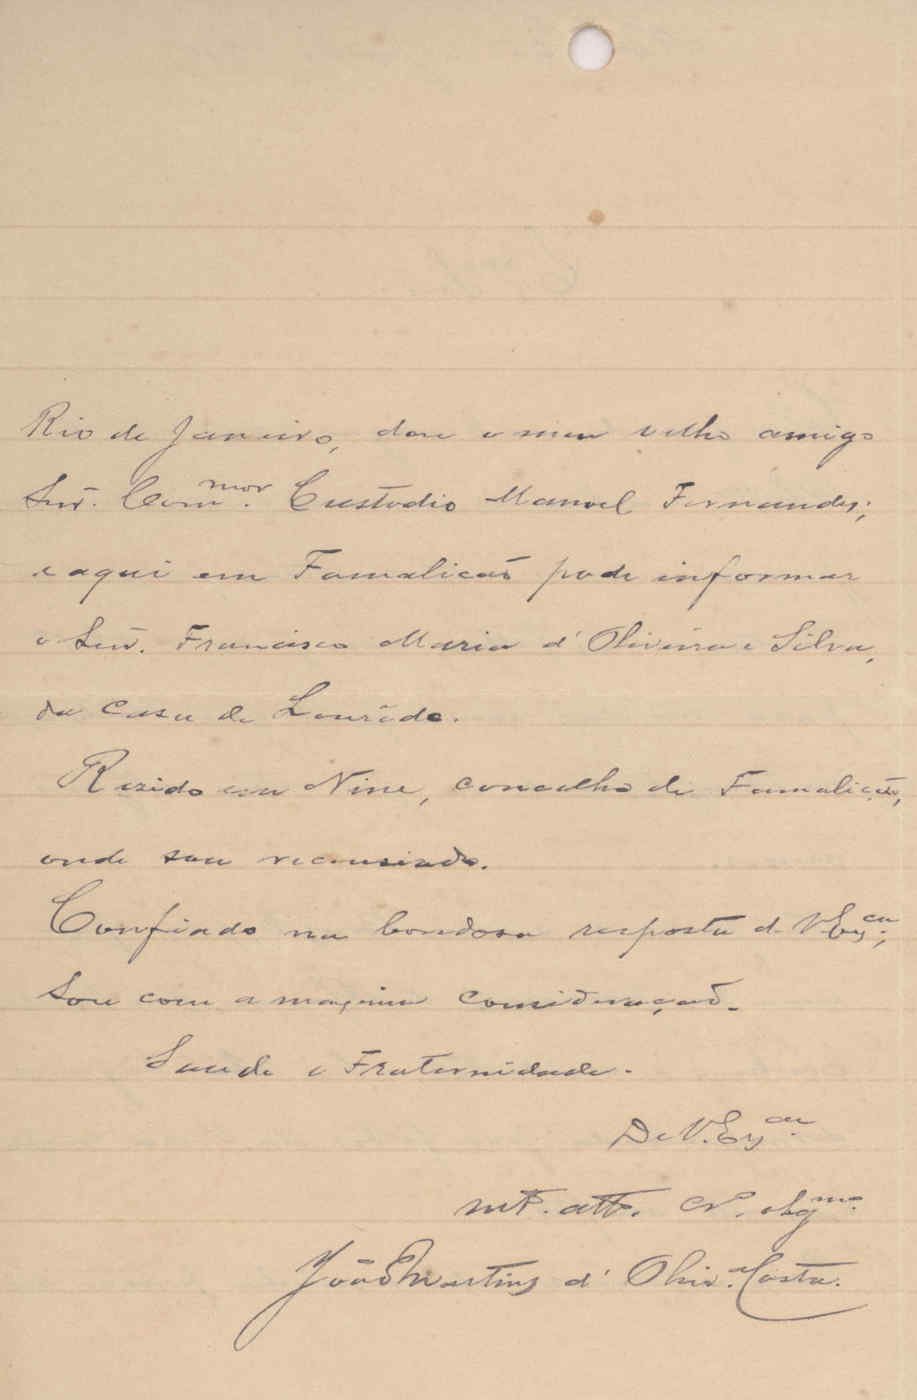 Rio de Janeiro, deu o meu velho amigo
Snr. Com.mor Custodio Manoel Fernandes;
e aqui em Famalicaõ pode informar
o Snr. Francisco Maria d'Oliveira e Silva,
da casa de Lourêdo.
Rezido em Nine, concelho de Famalicaõ,
onde sou recensiado.
Confiado na bondosa resposta de V. Ex.cia,
Sou com a maxima consideraçaõ.
Saude e Fraternidade.
De V. Ex.cia
mt.º att.º cr.º obg.mo
João Martins d'Oliv.ª Costa.